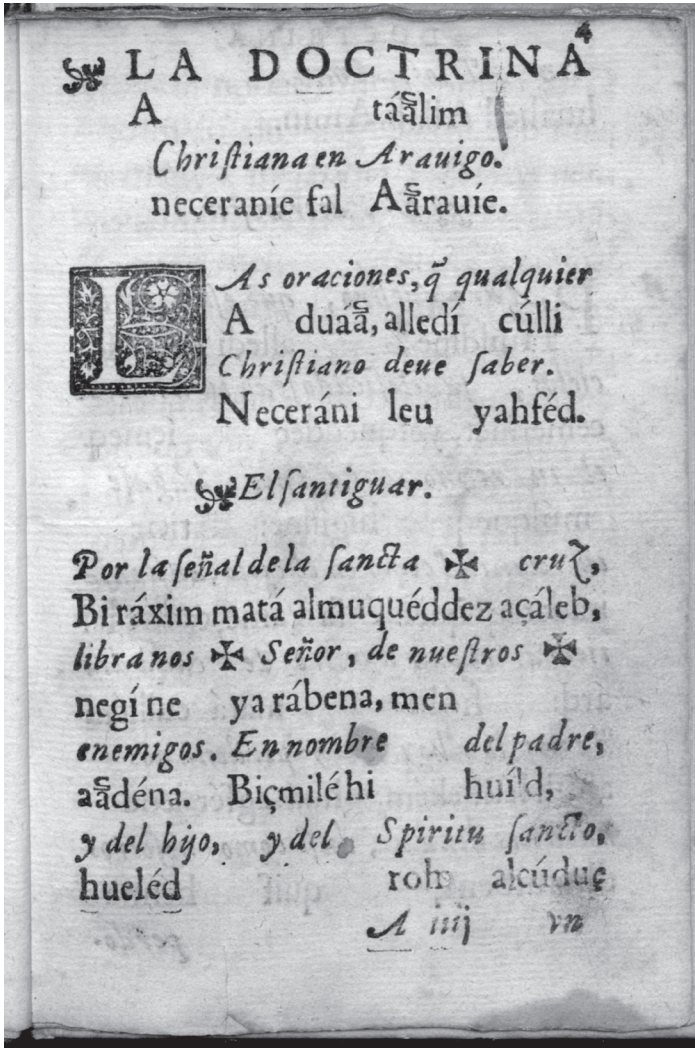 4
LA DOCTRINA
A táa͑lim
Christiana en Arauigo.
neceraníe fal Aa͑rauie.
LAs oraciones, q̃ qualquier
A duáa͑, alledí cúlli
Christiano deue ſaber.
Neceráni leu yahféd.
El ſantiguar.
Por la ſeñal de la ſancta ✠ cruz,
Bi ráxim matá almuquéddez açáleb,
libra nos ✠ Señor, de nueſtros ✠
negí ne ya rábena, men
enemigos. En nombre del padre,
aa͑déna. Biçmiléhi huíld,
y del hijo, y del Spiritu ſancto,
hueléd roh alcúduç
A iiij vn